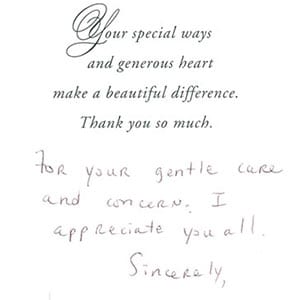 Your special ways
and generous heart
make a beautiful difference.
Thank you so much.
For your gentle care
and concern. I
appreciate you all.
Sincerely,